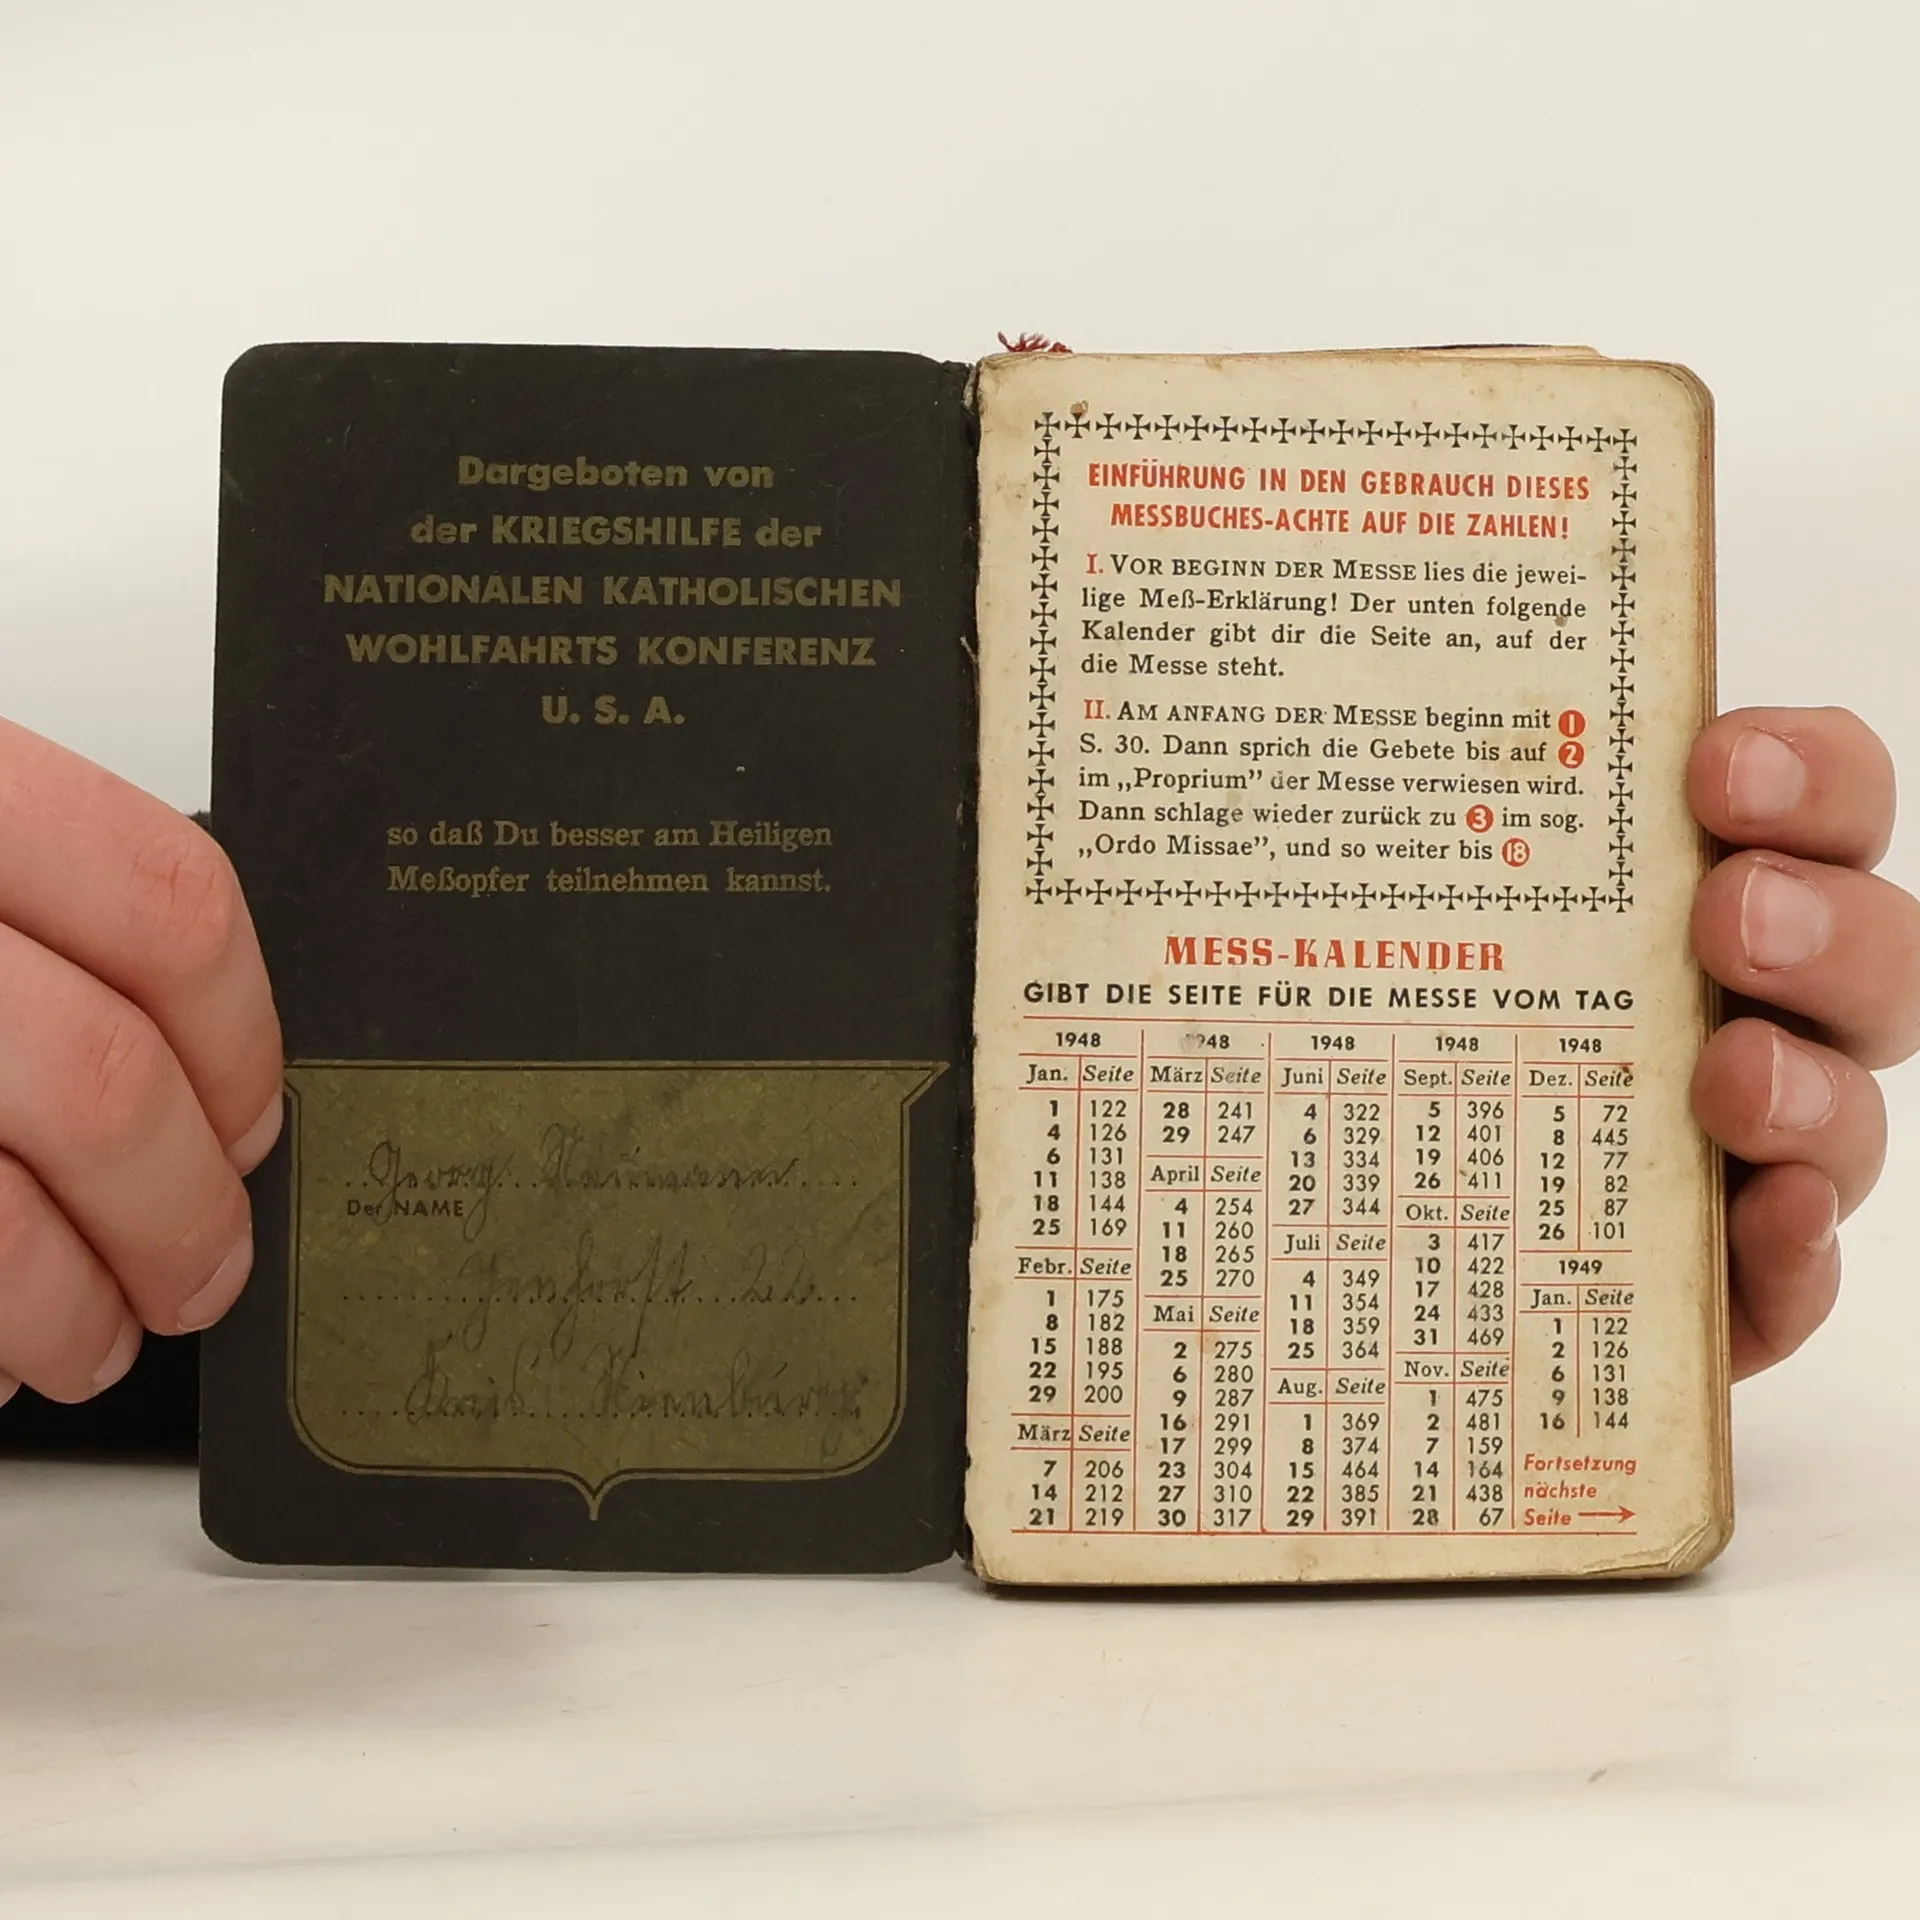 Dargeboten von
der KRIEGSHILFE der
NATIONALEN KATHOLISCHEN
WOHLFAHRTS KONFERENZ
U. S. A.
so daß Du besser am Heiligen
Meßopfer teilnehmen kannst.
Georg Naumann
Der NAME
22
Nienburg
EINFÜHRUNG IN DEN GEBRAUCH DIESES
MESSBUCHES-ACHTE AUF DIE ZAHLEN!
I. VOR BEGINN DER MESSE lies die jewei-
lige Meß-Erklärung! Der unten folgende
Kalender gibt dir die Seite an, auf der
die Messe steht.
II. AM ANFANG DER MESSE beginn mit 1
S. 30. Dann sprich die Gebete bis auf 2
im „Proprium” der Messe verwiesen wird.
Dann schlage wieder zurück zu 3 im sog.
„Ordo Missae”, und so weiter bis 18
MESS-KALENDER
GIBT DIE SEITE FÜR DIE MESSE VOM TAG
1948
Jan. Seite
1 122
4 126
6 131
11 138
18 144
25 169
Febr. Seite
1 175
8 182
15 188
22 195
29 200
März Seite
7 206
14 212
21 219
1948
März Seite
28 241
29 247
April Seite
4 254
11 260
18 265
25 270
Mai Seite
2 275
6 280
9 287
16 291
17 299
23 304
27 310
30 317
1948
Juni Seite
4 322
6 329
13 334
20 339
27 344
Juli Seite
4 349
11 354
18 359
25 364
Aug. Seite
1 369
8 374
15 464
22 385
29 391
1948
Sept. Seite
5 396
12 401
19 406
26 411
Okt. Seite
3 417
10 422
17 428
24 433
31 469
Nov. Seite
1 475
2 481
7 159
14 164
21 438
28 67
1948
Dez. Seite
5 72
8 445
12 77
19 82
25 87
26 101
1949
Jan. Seite
1 122
2 126
6 131
9 138
16 144
Fortsetzung
nächste
Seite